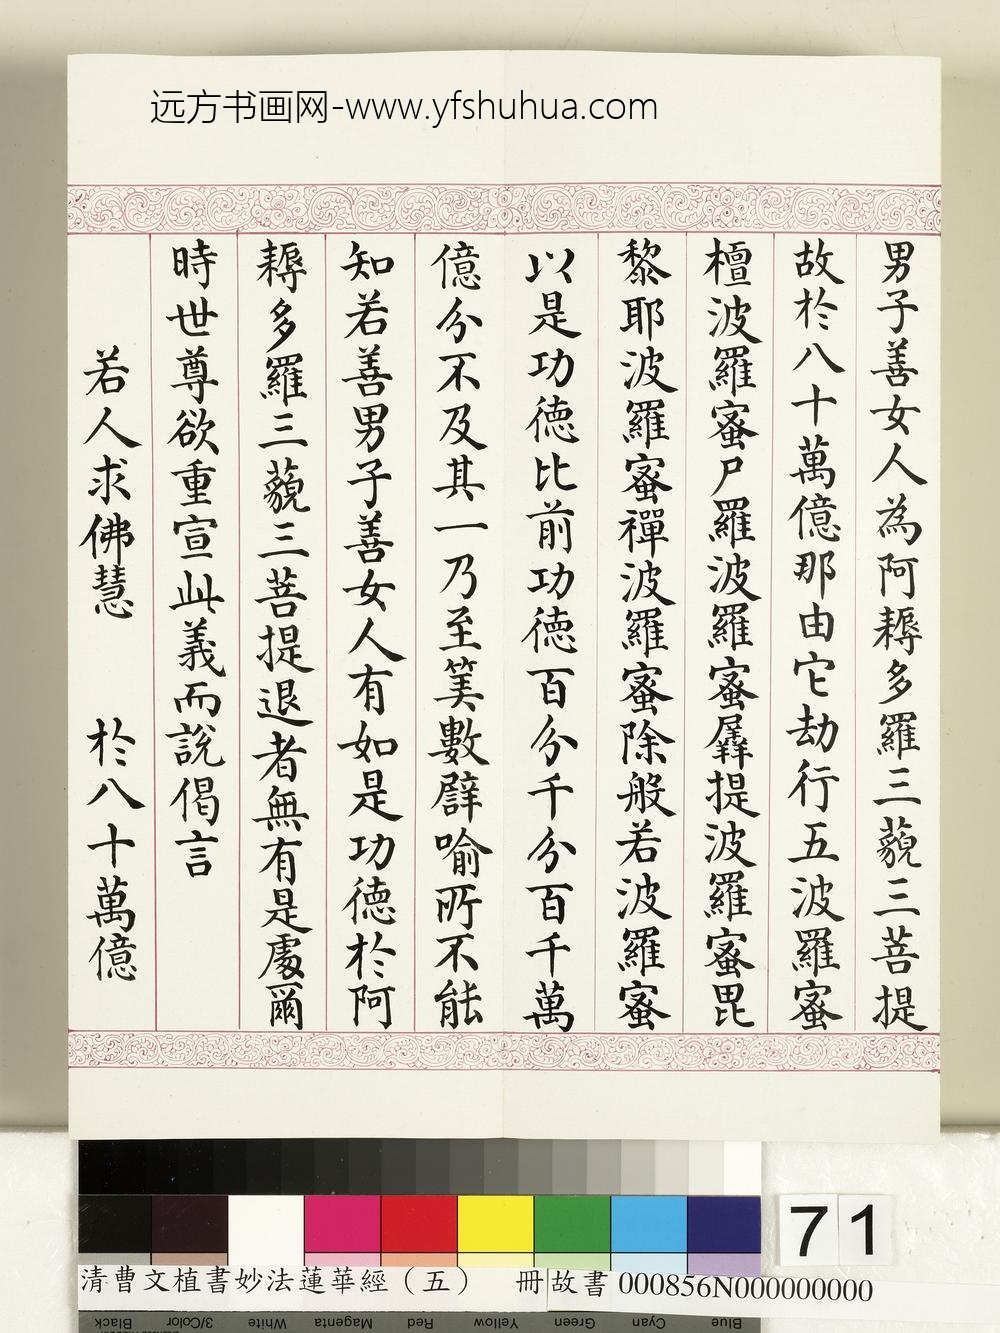 远方书画网-www.yfshuhua.com
男子善女人為阿耨多羅三藐三菩提
故於八十萬億那由它劫行五波羅蜜
檀波羅蜜尸羅波羅蜜羼提波羅蜜毘
黎耶波羅蜜禪波羅蜜除般若波羅蜜
以是功德比前功德百分千分百千萬
億分不及其一乃至筭數譬喻所不能
知若善男子善女人有如是功德於阿
耨多羅三藐三菩提退者無有是處爾
時世尊欲重宣此義而說偈言
若人求佛慧 於八十萬億
71
清曹文植書妙法蓮華經（五） 冊 故書 000856N000000000
Blue Cyan Green Yellow Red Magenta White 3/Color Black